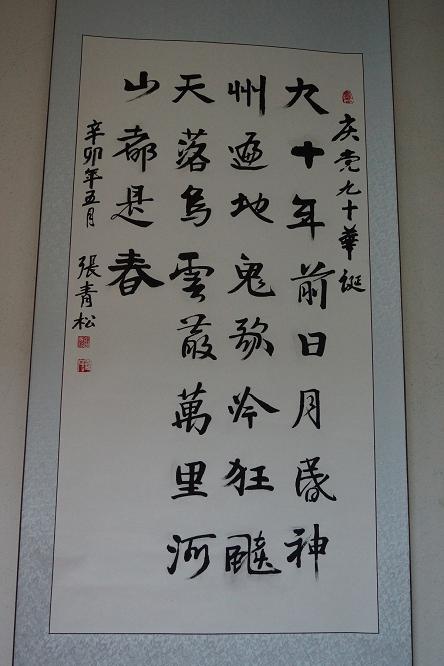 庆党九十華誕
九十年前日月昏神
州遍地鬼吟狂飈
天落烏雲散萬里河
山都是春
辛卯年五月
張青松